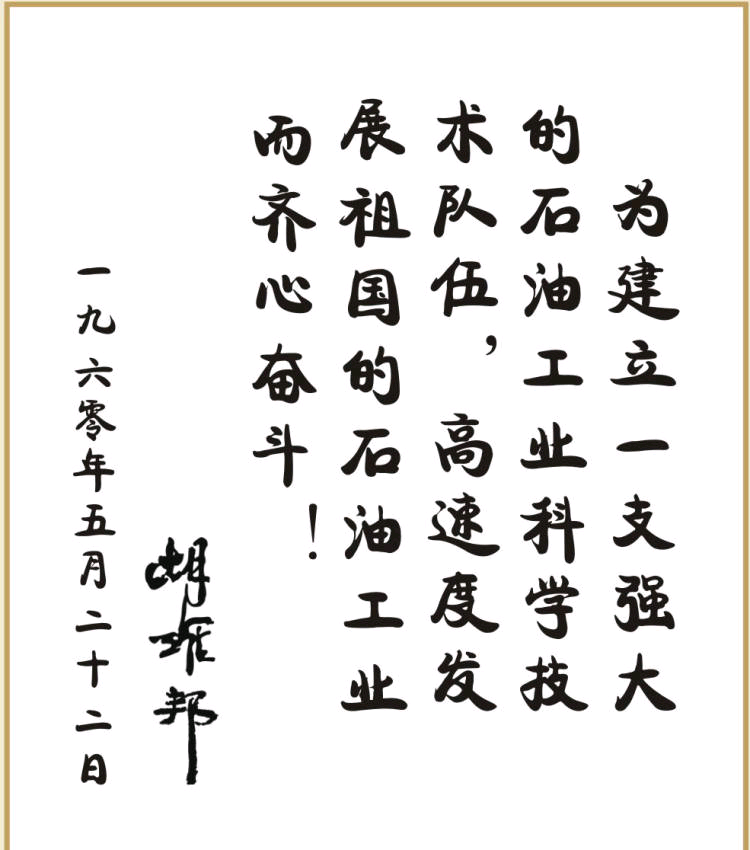 为建立一支强大
的石油工业科学技
术队伍，高速度发
展祖国的石油工业
而齐心奋斗！
胡耀邦
一九六零年五月二十二日